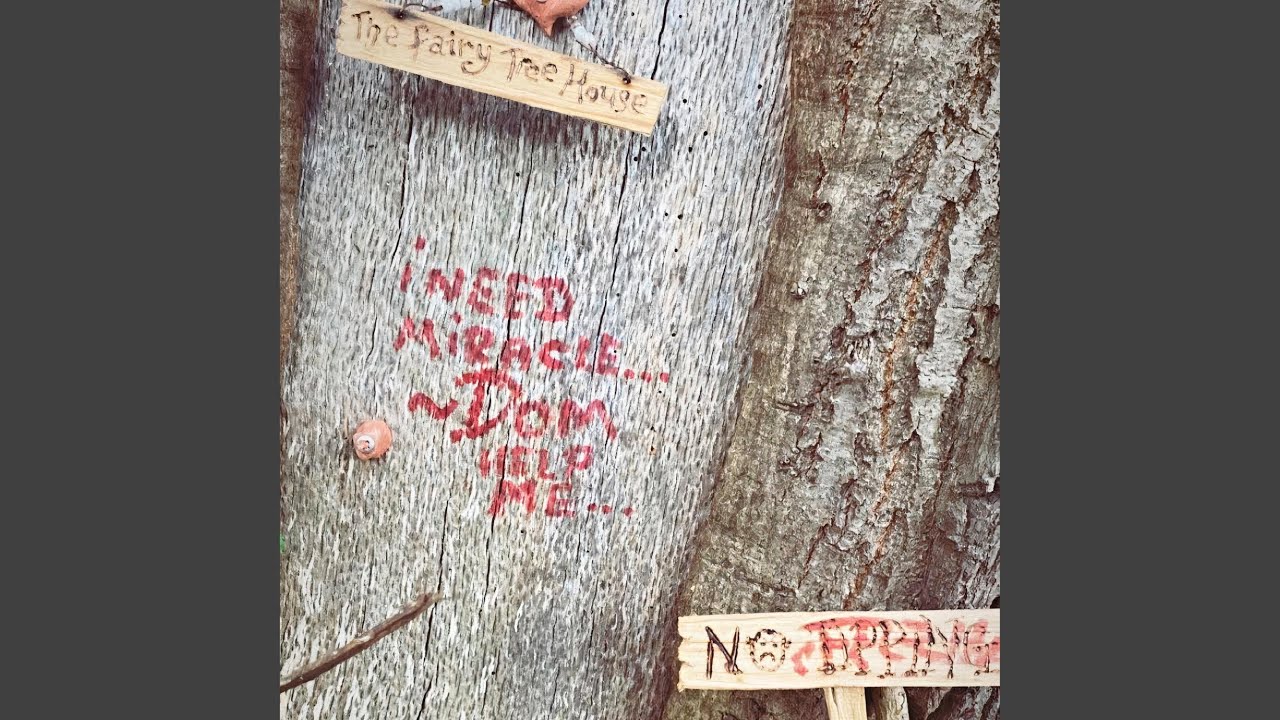 The Fairy Tree House
i NEED
MiRACLE...
~DOM
HELP
ME...
NO